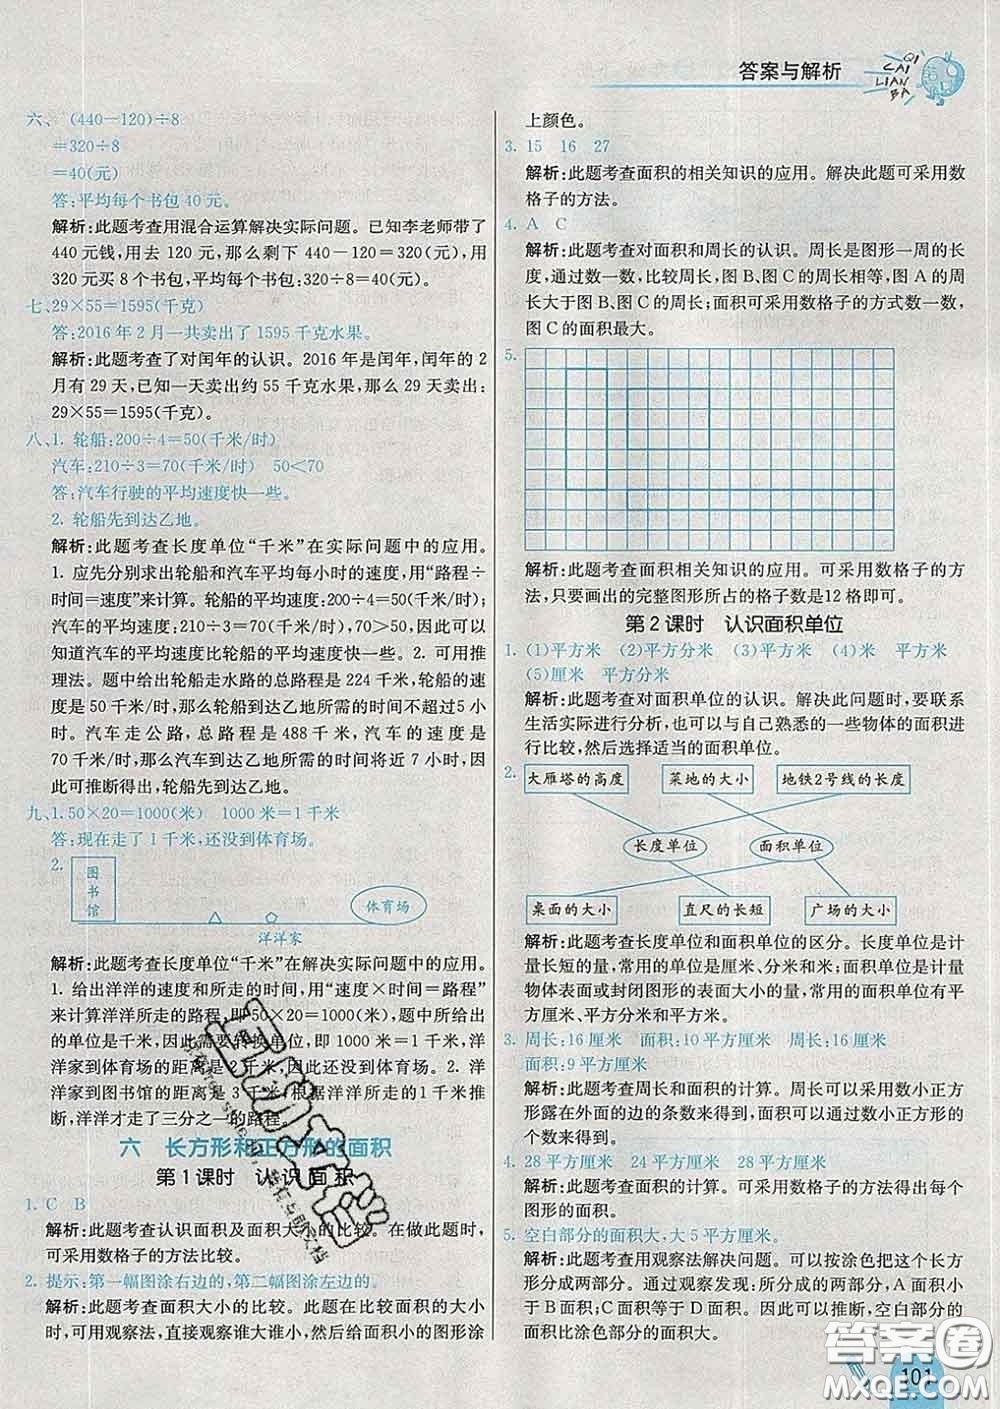 答案与解析
QI CAI LIAN BA
六、(440−120)÷8
=320÷8
=40(元)
答:平均每个书包 40 元。
解析:此题考查用混合运算解决实际问题。已知李老师带了
440 元钱,用去 120 元,那么剩下 440−120=320(元),用
320 元买 8 个书包,平均每个书包:320÷8=40(元)。
七、29×55=1595(千克)
答:2016 年 2 月一共卖出了 1595 千克水果。
解析:此题考查了对闰年的认识。2016 年是闰年,闰年的 2
月有 29 天,已知一天卖出约 55 千克水果,那么 29 天卖出:
29×55=1595(千克)。
八、1. 轮船:200÷4=50(千米/时)
汽车:210÷3=70(千米/时) 50<70
答:汽车行驶的平均速度快一些。
2. 轮船先到达乙地。
解析:此题考查长度单位“千米”在实际问题中的应用。
1. 应先分别求出轮船和汽车平均每小时的速度,用“路程÷
时间=速度”来计算。轮船的平均速度:200÷4=50(千米/时);
汽车的平均速度:210÷3=70(千米/时),70>50,因此可以
知道汽车的平均速度比轮船的平均速度快一些。2. 可用推
理法。题中给出轮船走水路的总路程是 224 千米,轮船的速
度是 50 千米/时,那么轮船到达乙地所需的时间不超过5小
时。汽车走公路,总路程是 488 千米,汽车的速度是
70 千米/时,那么汽车到达乙地所需的时间将近 7 小时,所以
轮船先到达乙地。
九、1.50×20=1000(米) 1000 米=1千米
答:现在走了 1 千米,还没到体育场。
2. 图书馆
体育场
洋洋家
解析:此题考查长度单位“千米”在解决实际问题中的应用。
1. 给出洋洋的速度和所走的时间,用“速度×时间=路程”
来计算洋洋所走的路程,即 50×20=1000(米),题中所给出
的单位是千米,因此需要转换单位,即 1000 米=1 千米,洋
洋家到体育场的距离是 2 千米,所以还没到体育场。2. 洋
洋家到图书馆的距离是 3 千米,根据洋洋所走的 1千米推
断,洋洋才走了三分之一的路程。
六 长方形和正方形的面积
第 1 课时 认识面积
1. C B
解析:此题考查认识面积及面积大小的比较。在做此题时,
可采用数格子的方法比较。
2. 提示:第一幅图涂右边的,第二幅图涂左边的。
解析:此题考查面积大小的比较。此题在比较面积的大小
时,可用观察法,直接观察谁大谁小,然后给面积小的图形涂
上颜色。
3. 15 16 27
解析:此题考查面积的相关知识的应用。解决此题可采用数
格子的方法。
4. A C
解析:此题考查对面积和周长的认识。周长是图形一周的长
度,通过数一数,比较周长,图 B、图 C 的周长相等,图 A 的周
长大于图 B、图 C 的周长;面积可采用数格子的方式数一数,
图 C 的面积最大。
5.
解析:此题考查面积相关知识的应用。可采用数格子的方
法,只要画出的完整图形所占的格子数是12 格即可。
第 2 课时 认识面积单位
1. (1)平方米 (2)平方分米 (3)平方米 (4)米 平方米
(5)厘米 平方分米
解析:此题考查对面积单位的认识。解决此问题时,要联系
生活实际进行分析,也可以与自己熟悉的一些物体的面积进
行比较,然后选择适当的面积单位。
2. 大雁塔的高度 菜地的大小 地铁2号线的长度
长度单位 面积单位
桌面的大小 直尺的长短 广场的大小
解析:此题考查长度单位和面积单位的区分。长度单位是计
量长短的量,常用的单位是厘米、分米和米等;面积单位是计
量物体表面或封闭图形的表面大小的量,常用的单位有平方
厘米、平方分米和平方米等。
3. 周长:16 厘米 面积:10 平方厘米 周长:16 厘米
面积:9 平方厘米
解析:此题考查周长和面积的计算。周长可以采用数小正方
形露在外面的边的条数来计算;面积可通过数小正方形的个
数得到。
4. 28 平方厘米 24 平方厘米 28 平方厘米
解析:此题考查面积的计算。可采用数格子的方法得出每个
图形的面积。
5. 空白部分的面积大,大 5 平方厘米。
解析:此题考查用观察法解决问题。可以按涂色把这个长方
形分成两部分。通过观察发现:所分成的两部分,A 面积小
于 B 面积,C 面积等于 D 面积。因此可以推断,空白部分的
面积比涂色部分的面积大。
101
答案圈
MXQE.COM